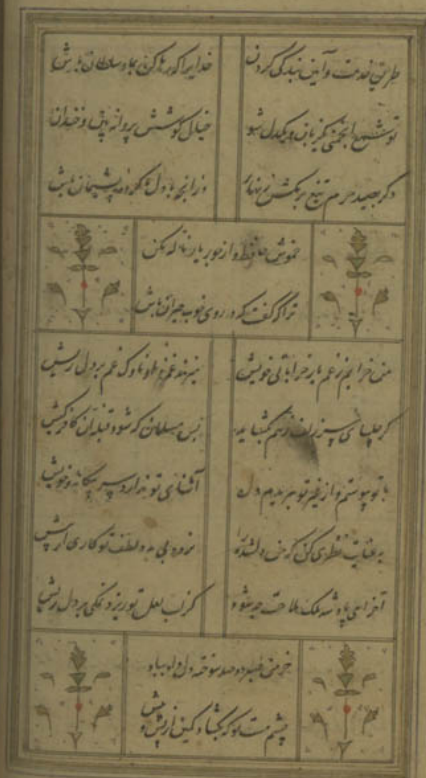 طریق خدمت و آیین بندگی کردن
خدایرا که رها کن بما و سلطان باش
تو شمع انجمنی یکزبان و یکدل شو
خیال کوشش پروانه بین و خندان
دگر بصید حرم تیغ برمکش زنهار
وزانچه با دل ما کرده پشیمان باش
خموش حافظ و از جور یار ناله مکن
ترا که گفت که در روی خوب حیران باش
من خرابم ز غم یار خراباتی خویش
میزند غمزه او ناوک غم بر دل ریش
گر چلیپای سر زلف ز هم بگشاید
بس مسلمان که شود فتنه آن کافر کیش
با تو پیوستم و از غیر تو ببریدم دل
آشنای تو ندارد سر بیگانه و خویش
به عنایت نظری کن که من دلشده را
نرود بی مدد لطف تو کاری از پیش
آخر ای پادشه ملک ملاحت چه شود
کز لب لعل تو ریزد نمکی بر دل ریش
خرمن صبر من سوخته دل داد بباد
چشم مست تو که بگشاد کمین از پس و پیش